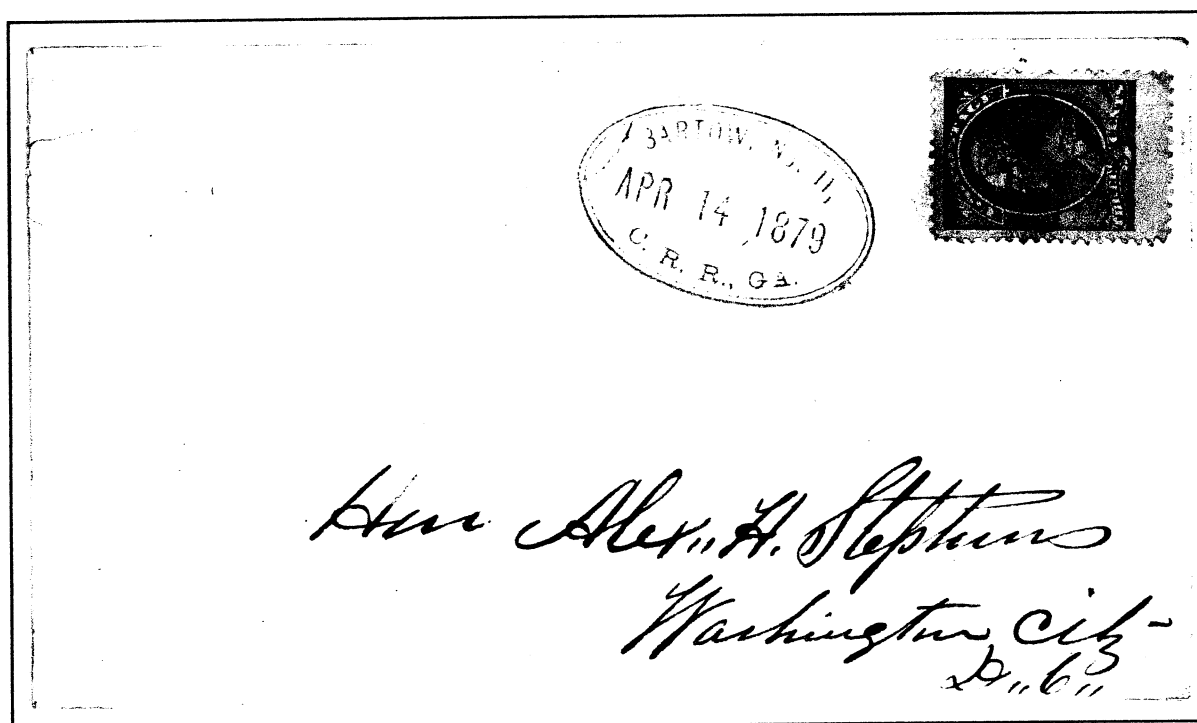 BARTOW, No. 11,
APR 14 1879
C. R. R., GA.
Hon Alex,, H. Stephens
Washington City-
D,, C,,